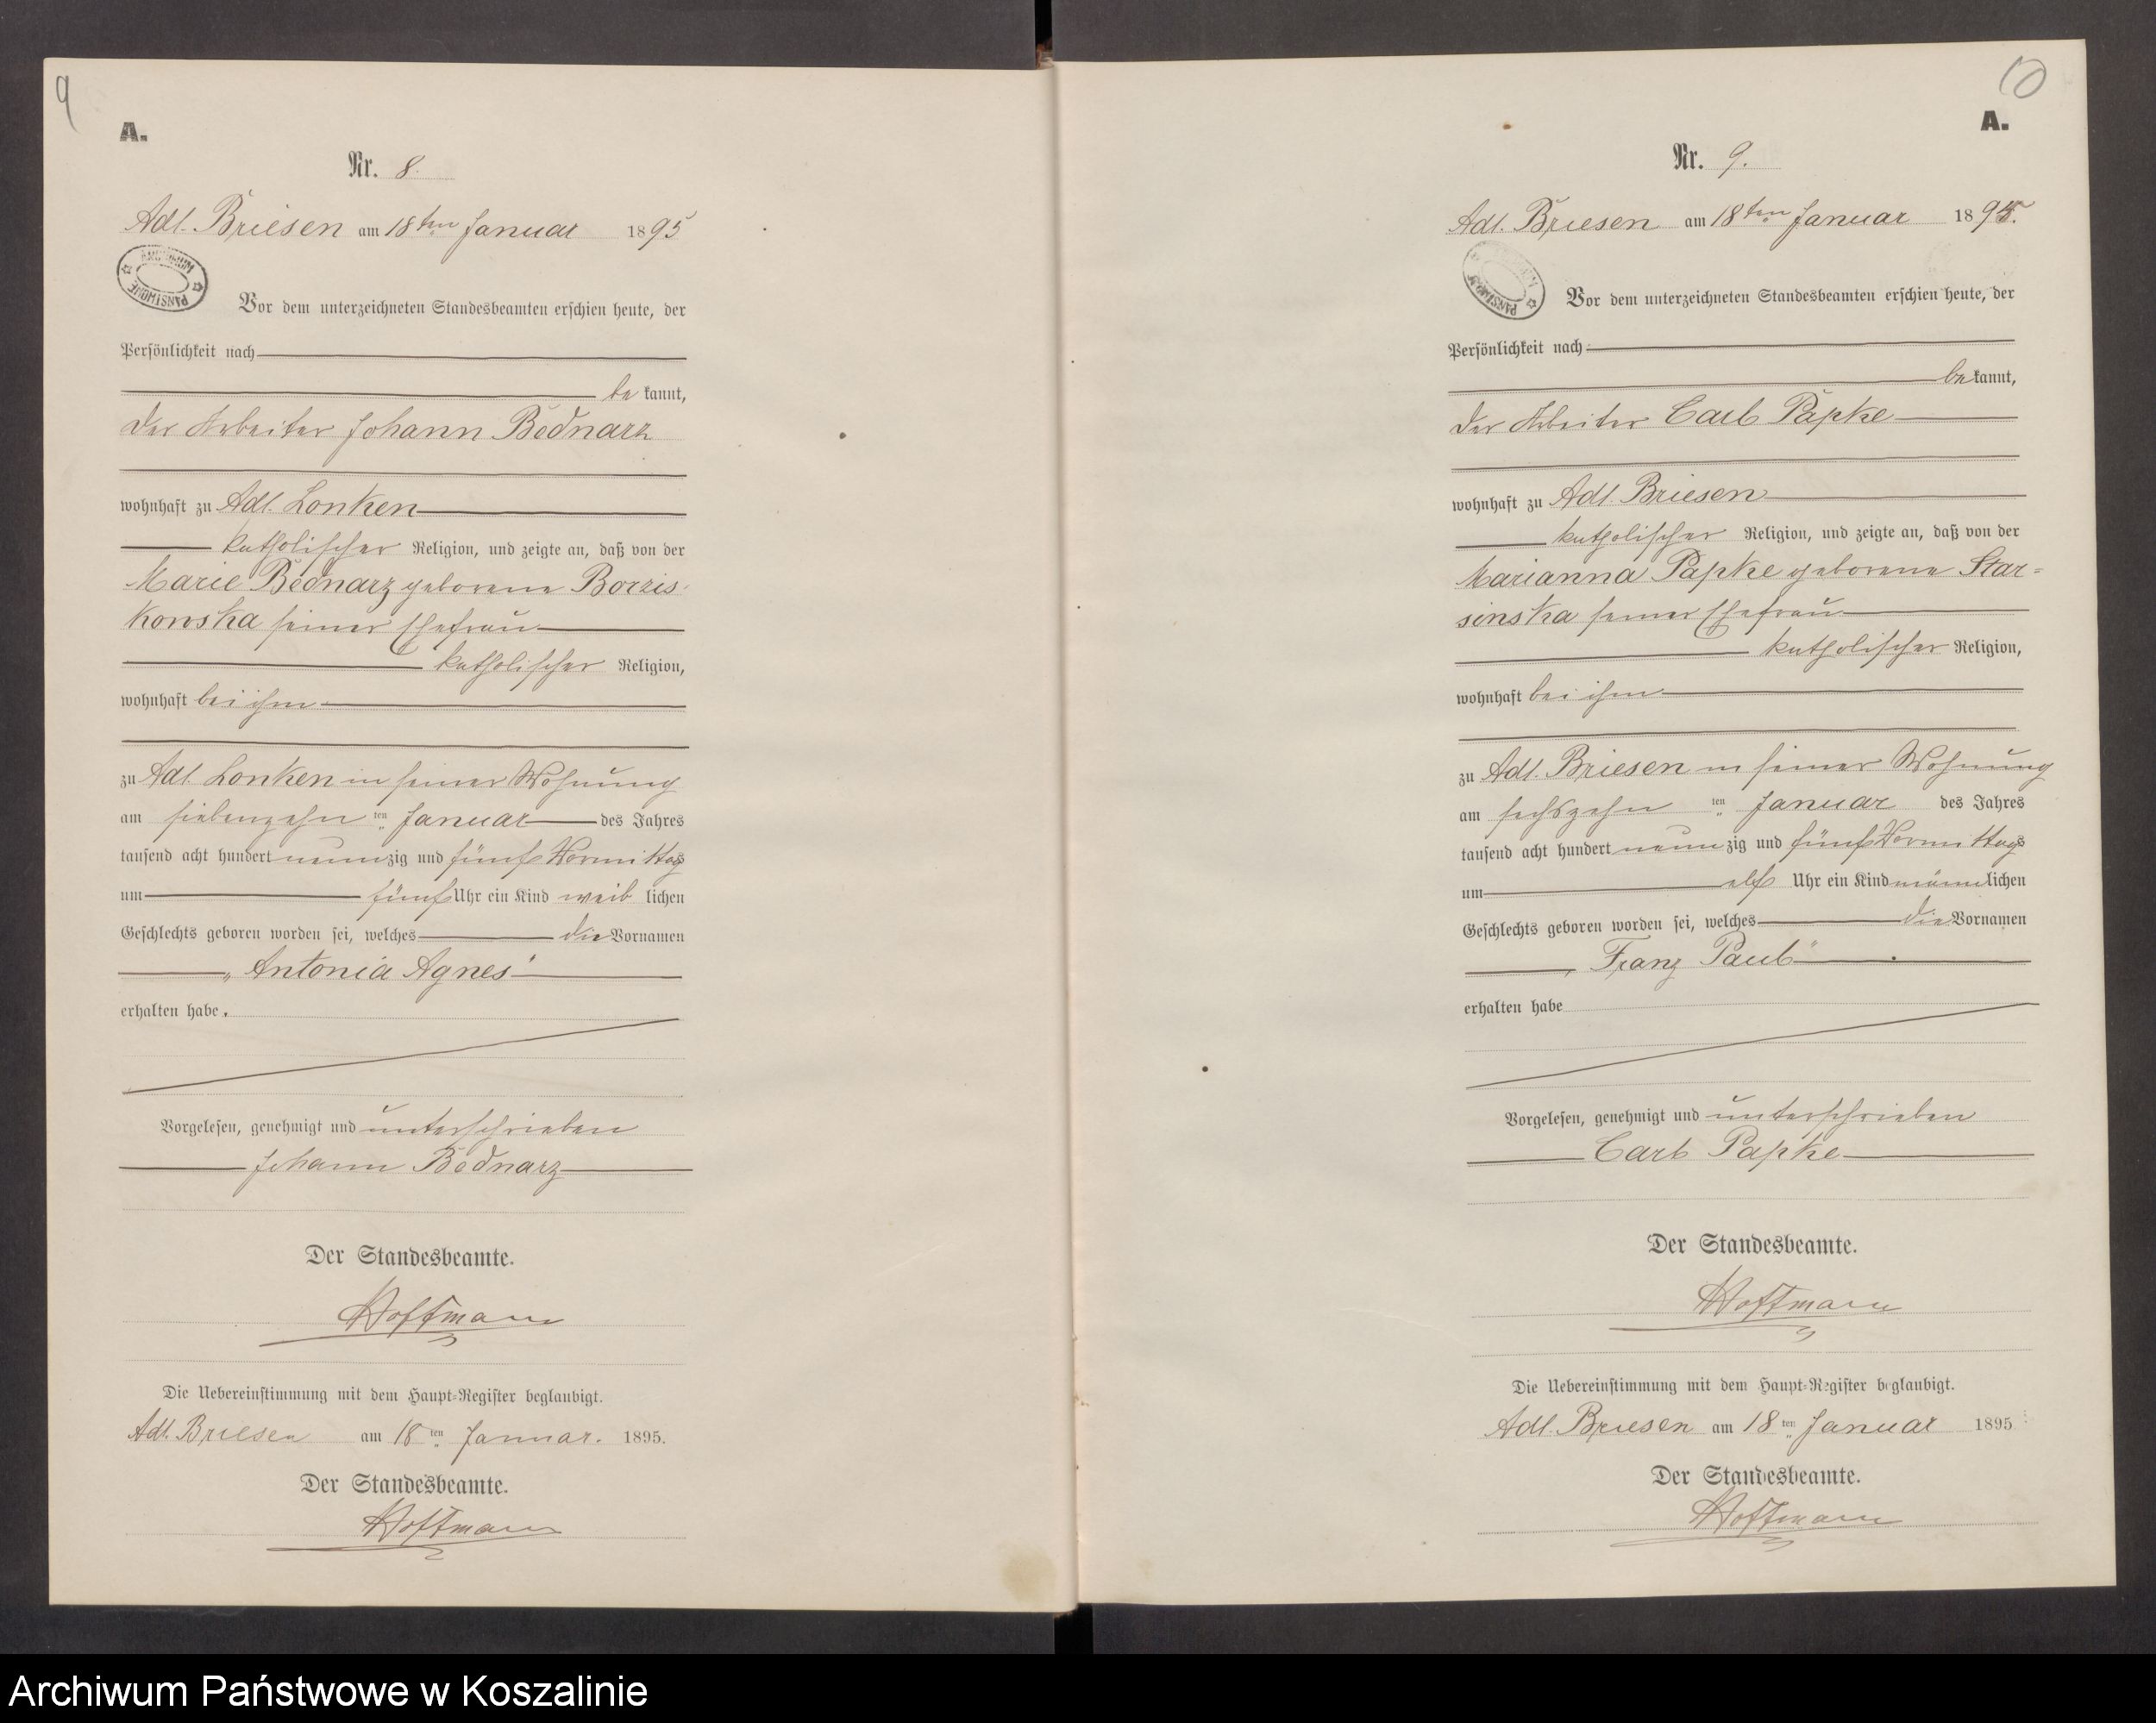 9
A.
Nr. 8.
Adl. Briesen am 18ten Januar 1895
ARCHIWUM PAŃSTWOWE
Vor dem unterzeichneten Standesbeamten erschien heute, der
Persönlichkeit nach
be kannt,
der Arbeiter Johann Bednarz
wohnhaft zu Adl. Lonken
katholischer Religion, und zeigte an, daß von der
Marie Bednarz geborene Borzis-
Kowska seiner Ehefrau
katholischer Religion,
wohnhaft bei ihm
zu Adl. Lonken in seiner Wohnung
am siebenzehn ten Januar des Jahres
tausend acht hundert neun zig und fünf Vormittags
um fünf Uhr ein Kind weib lichen
Geschlechts geboren worden sei, welches die Vornamen
„Antonia Agnes"
erhalten habe.
Vorgelesen, genehmigt und unterschrieben
Johann Bednarz
Der Standesbeamte.
Hoffmann
Die Uebereinstimmung mit dem Haupt-Register beglaubigt.
Adl. Briesen am 18ten Januar. 1895.
Der Standesbeamte.
Hoffmann
10
A.
Nr. 9.
Adl. Briesen am 18ten Januar 1895.
Vor dem unterzeichneten Standesbeamten erschien heute, der
Persönlichkeit nach
be kannt,
der Arbeiter Carl Papke
wohnhaft zu Adl. Briesen
katholischer Religion, und zeigte an, daß von der
Marianna Papke geborene Star=
sinska seiner Ehefrau
katholischer Religion,
wohnhaft bei ihm
zu Adl. Briesen in seiner Wohnung
am sechszehn ten Januar des Jahres
tausend acht hundert neun zig und fünf Vormittags
um elf Uhr ein Kind männ lichen
Geschlechts geboren worden sei, welches die Vornamen
„Franz Paul"
erhalten habe
Vorgelesen, genehmigt und unterschrieben
Carl Papke
Der Standesbeamte.
Hoffmann
Die Uebereinstimmung mit dem Haupt-Register beglaubigt.
Adl. Briesen am 18ten Januar 1895
Der Standesbeamte.
Hoffmann
Archiwum Państwowe w Koszalinie